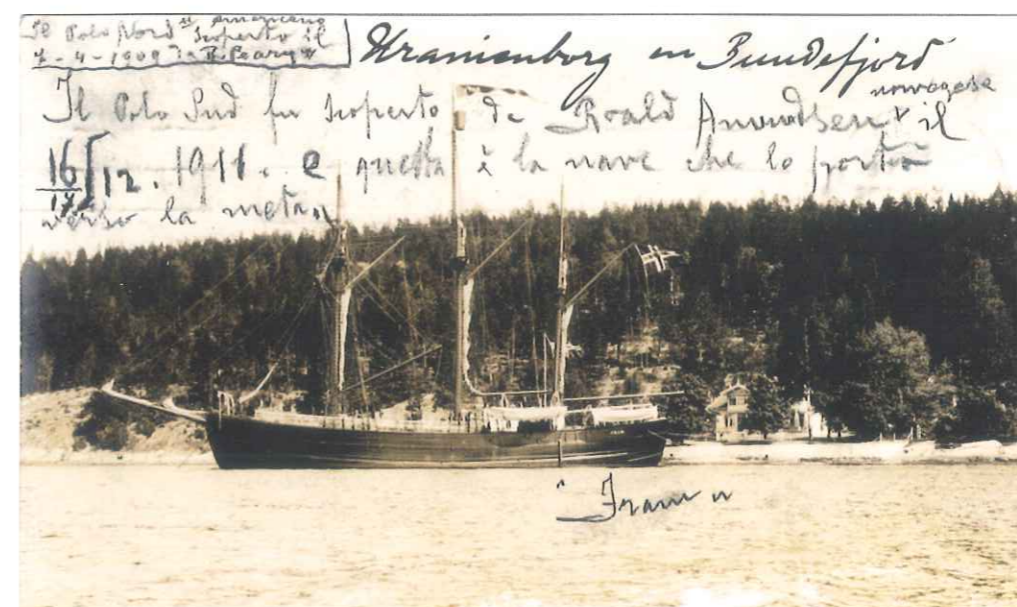 Il Polo Nord
il americano
scoperto il
7-4-1909 da R. Peary
Uranienborg en Bundefjord
Il Polo Sud fu scoperto da Roald Amundsen il
norvegese
16/12. 1911. e questa è la nave che lo portò
17
verso la meta
"Fram"